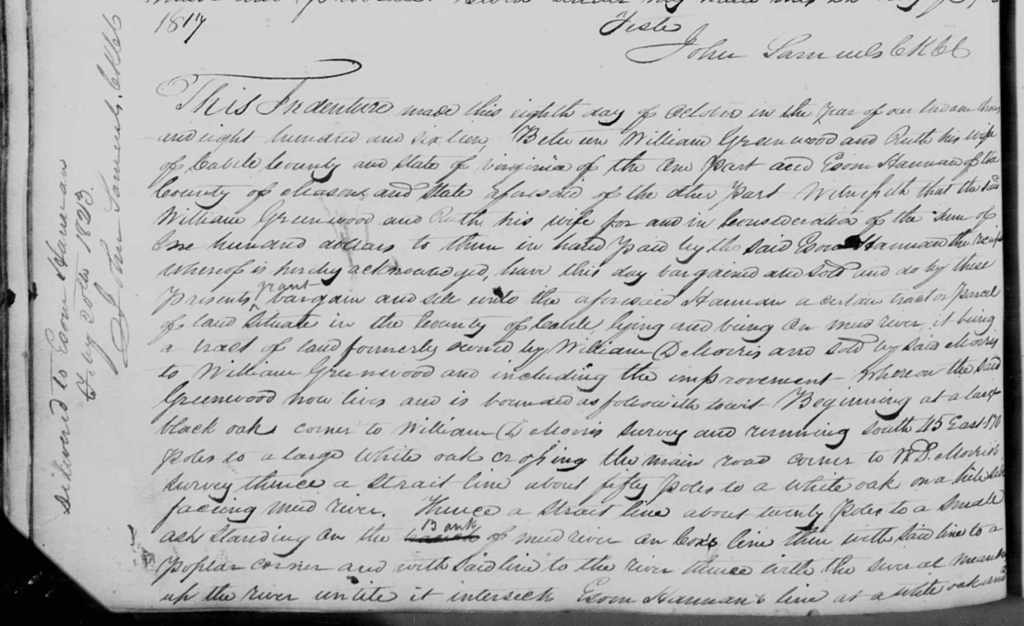 1817
Teste
John Samuels CKCC
This Indenture made this eighth day of October in the year of our
and eight hundred and sixteen Between William Greenwood and Ruth his wife
of Cabell County and State of Virginia of the one Part and Esom Hannan of the
County of Mason and State aforesaid of the other Part Witnesseth that the said
William Greenwood and Ruth his wife for and in Consideration of the sum of
One hundred dollars to them in hand Paid by the said Esom Hannan the
whereof is hereby acknowledged, have this day bargained and sold and do by these
Presents, grant bargain and sell unto the aforesaid Hannan a certain tract or Parcel
of land Situate in the County of Cabell lying and being on mud river it being
a tract of land formerly owned by William D Morris and sold by said Morris
to William Greenwood and including the improvement Whereon the said
Greenwood now lives and is bounded as followith towit Beginning at a large
black oak corner to William D Morris survey and running South 45 East 170
Poles to a large white oak crossing the main road corner to W. D. Morris's
survey thence a strait line about fifty Poles to a white oak on a hill side
facing mud river. Thence a strait line about twenty Poles to a small
ash standing on the Bank of mud river on Cox's line then with said line to a
Poplar corner and with said line to the river thence with the several
up the river untile it intersick Esom Hannan's line at a white oak and
Delivered to Esom Hannan
20th 1823
John Samuels. CKCC